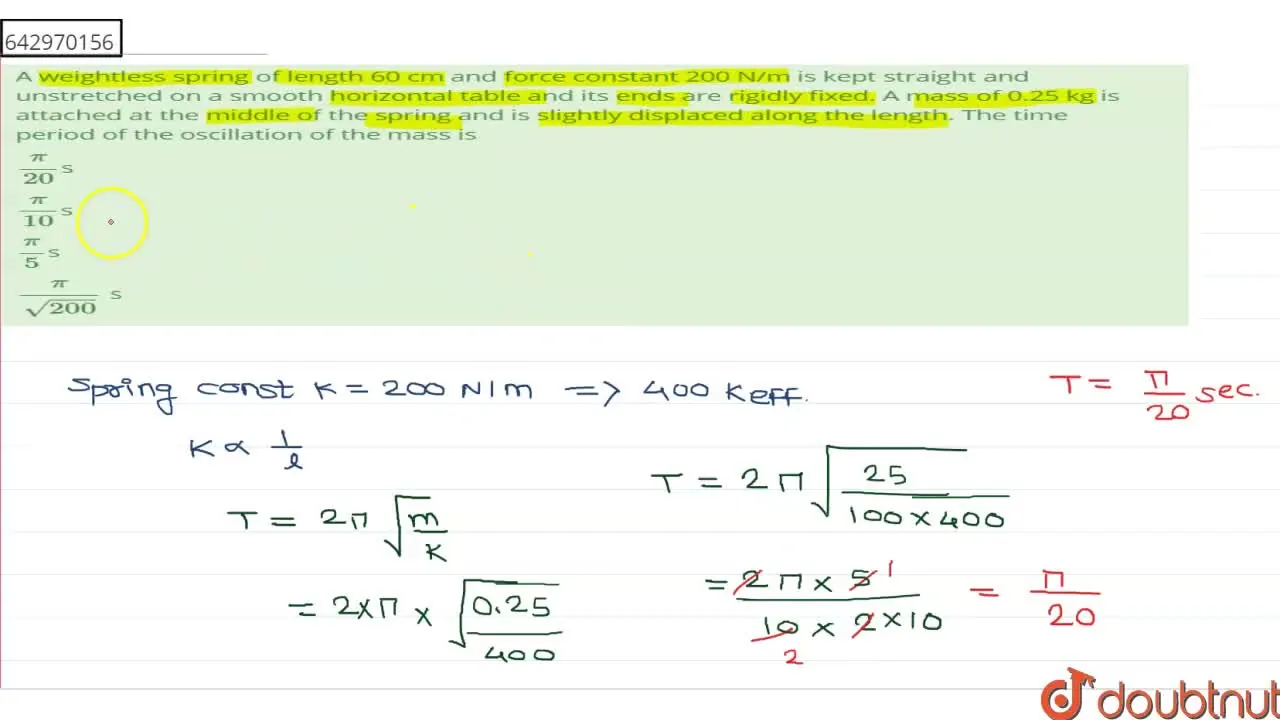 642970156
A weightless spring of length 60 cm and force constant 200 N/m is kept straight and
unstretched on a smooth horizontal table and its ends are rigidly fixed. A mass of 0.25 kg is
attached at the middle of the spring and is slightly displaced along the length. The time
period of the oscillation of the mass is
π/20 s
π/10 s
π/5 s
π/√200 s
Spring const K = 200 N/m => 400 Keff.
T = π/20 sec.
K ∝ 1/l
T = 2π √(m/K)
= 2×π × √(0.25/400)
T = 2π √(25/(100×400))
= (2π × 5 1)/(10 2 × 2×10) = π/20
doubtnut